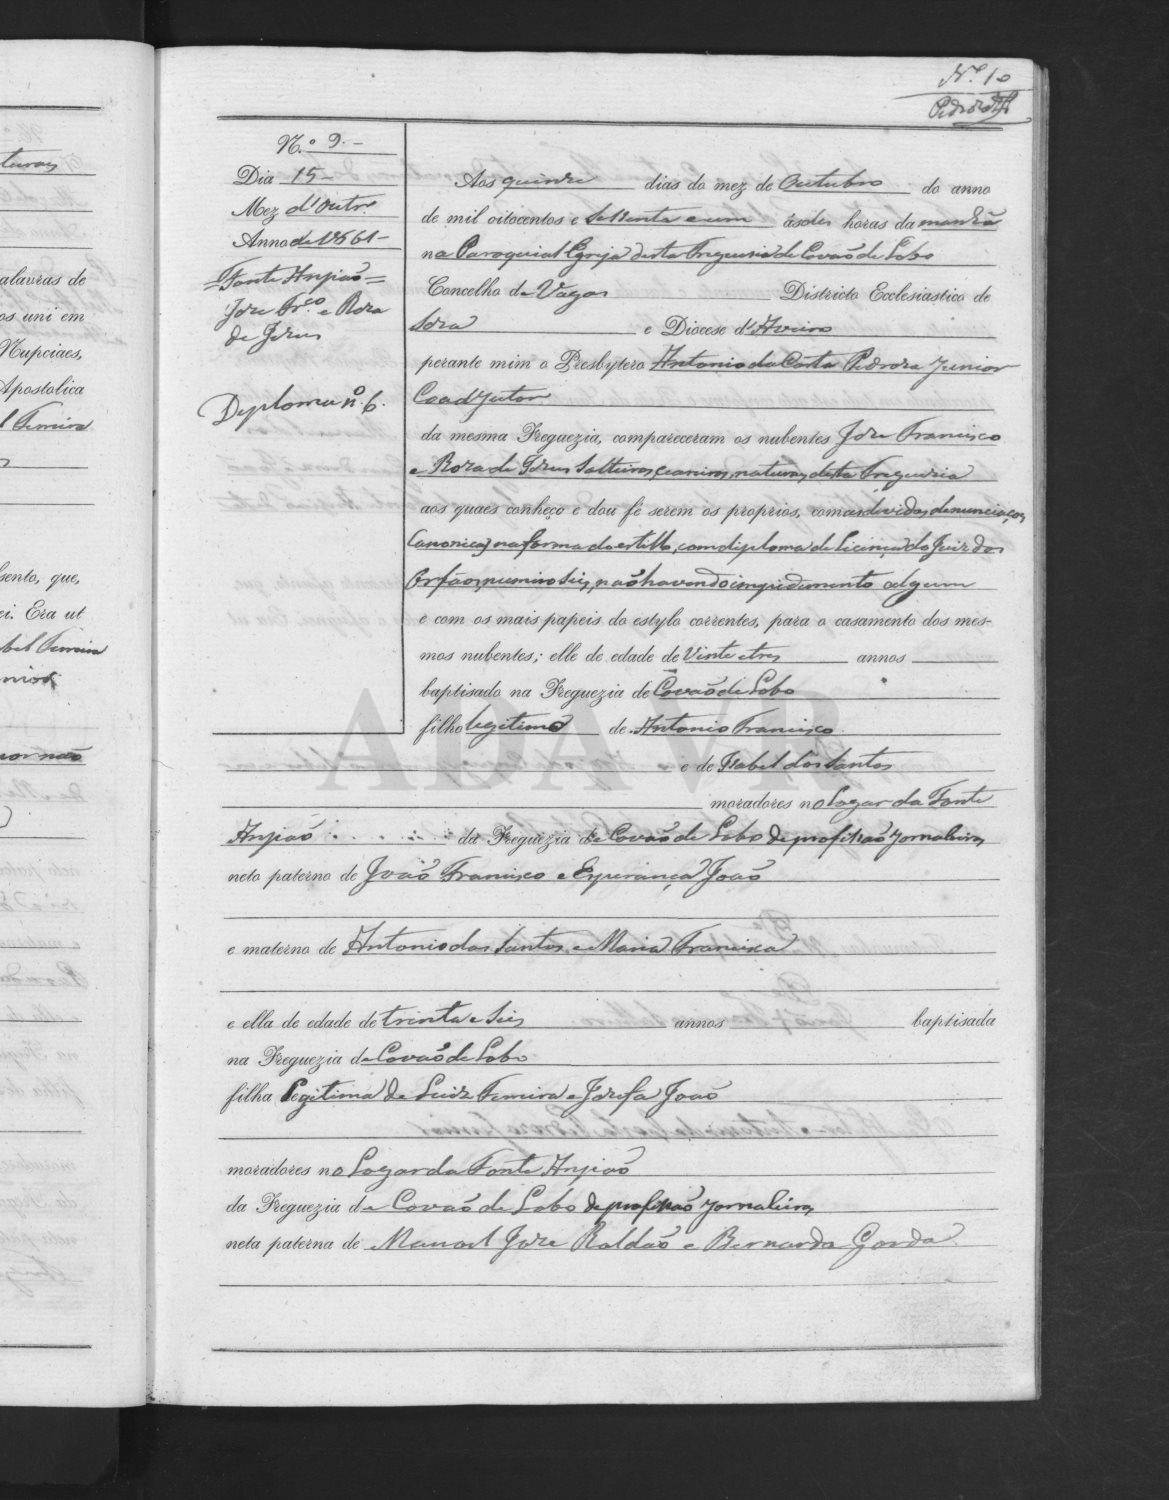 N.º 10
Pedroza
N.º 9.
Dia 15
Mez d'Outr.º
Anno de 1861
=Fonte Anjiaõ=
Joze Fr.co e Roza
de Jezus
Diploma nº. 6.
Aos quinze dias do mez de Outubro do anno
de mil oitocentos e sessenta e um ás dez horas da manhã
na Paroquial Egreja desta Freguezia de Covaõ de Lobo
Concelho de Vagos Districto Ecclesiastico de
Soza e Diocese d'Aveiro
perante mim o Presbytero Antonio da Costa Pedroza Junior
Coadjutor
da mesma Freguezia, compareceram os nubentes Joze Francisco
e Roza de Jezus Solteiros, naturas desta Freguezia
aos quaes conheço e dou fé serem os proprios, com as devidas denunciaçoes
Canonicas na forma do estillo, com diploma de licença do Juiz dos
Orfãos, numero Seis, naõ havendo impedimento algum
e com os mais papeis do estylo correntes, para o casamento dos mes-
mos nubentes; elle de edade de Vinte e tres annos
baptisado na Freguezia de Covaõ de Lobo
filho legitimo de Antonio Francisco
e de Izabel dos Santos
moradores no Logar da Fonte
Anjiaõ da Freguezia de Covaõ de Lobo de profissaõ Jornaleiros
neto paterno de Joaõ Francisco e Esperança Joaõ
e materno de Antonio dos Santos e Maria Francisca
e ella de edade de trinta e Seis annos baptisada
na Freguezia de Covaõ de Lobo
filha legitima de Luiz Ferreira e Jozefa Joaõ
moradores no Logar da Fonte Anjiaõ
da Freguezia de Covaõ de Lobo de profissaõ Jornaleiros
neta paterna de Manoel Joze Roldaõ e Bernarda Gorda
ADAVR